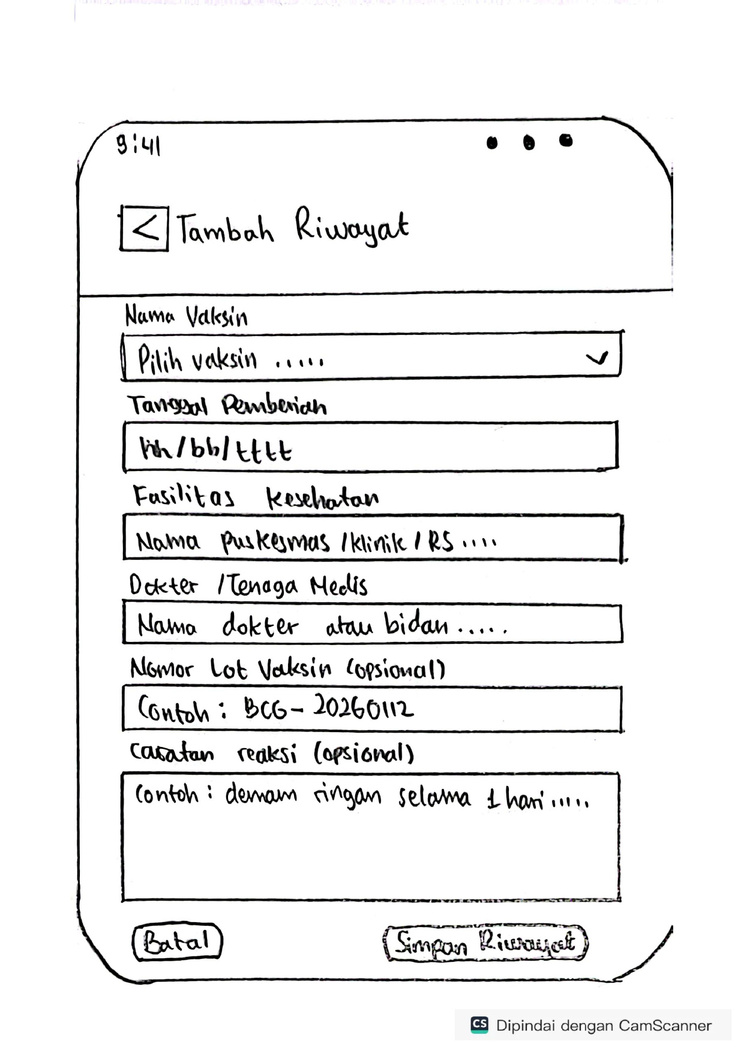 9:41
< Tambah Riwayat
Nama Vaksin
Pilih vaksin .....
Tanggal Pemberian
hh/bb/tttt
Fasilitas Kesehatan
Nama puskesmas /klinik / RS ....
Dokter /Tenaga Medis
Nama dokter atau bidan .....
Nomor Lot Vaksin (opsional)
Contoh : BCG - 20260112
Catatan reaksi (opsional)
Contoh : demam ringan selama 1 hari .....
Batal
Simpan Riwayat
CS Dipindai dengan CamScanner